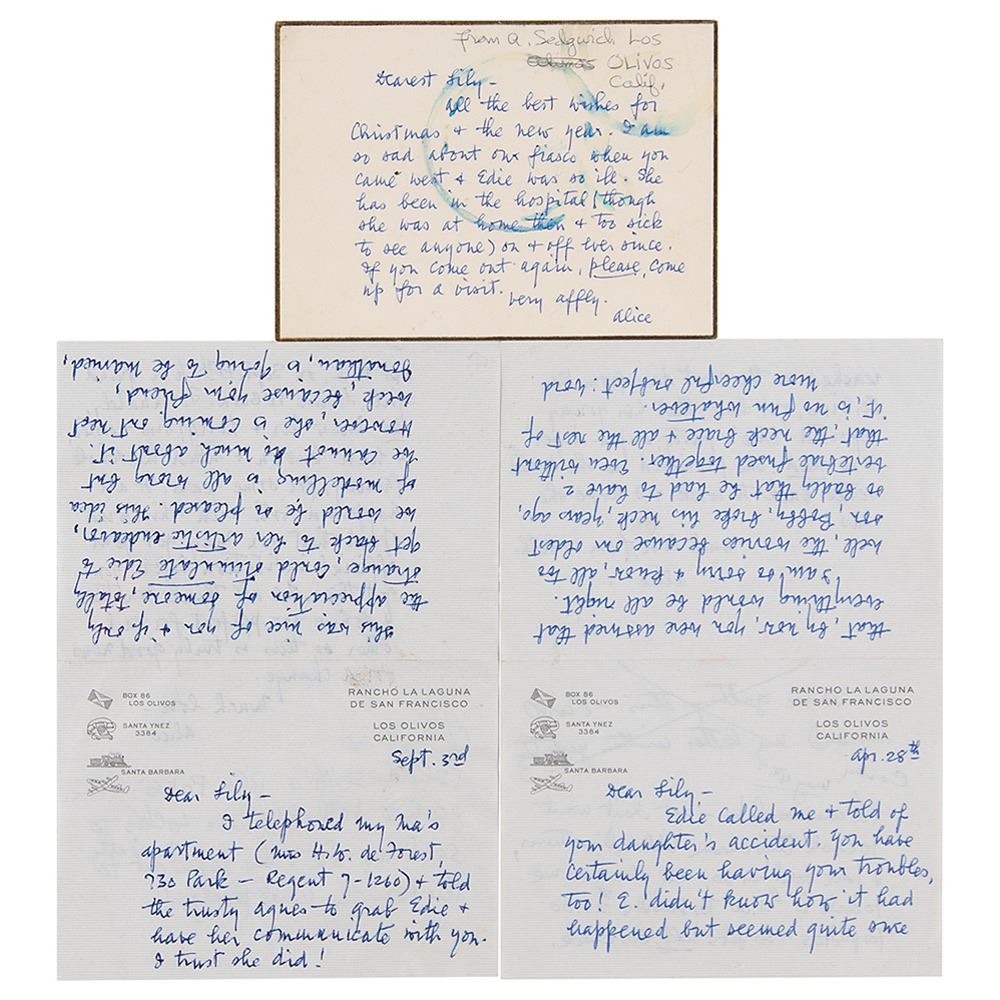 From A. Sedgwick Los
OLIVOS
Calif.
Dearest Lily -
All the best wishes for
Christmas + the new year. I am
so sad about our fiasco when you
came west + Edie was so ill. She
has been in the hospital (though
she was at home then + too sick
to see anyone) on + off ever since.
If you come out again, please, come
up for a visit.
very affly.
Alice
BOX 86
LOS OLIVOS
SANTA YNEZ
3384
SANTA BARBARA
RANCHO LA LAGUNA
DE SAN FRANCISCO
LOS OLIVOS
CALIFORNIA
Sept. 3rd
Dear Lily -
I telephoned my Ma's
apartment (Mrs H.W. de Forest,
730 Park - Regent 7-1260) + told
the trusty Agnes to grab Edie +
have her communicate with you.
I trust she did!
This was nice of you + if only
the appreciation of someone, totally
strange, could stimulate Edie to
get back to her artistic endeavor,
we would be so pleased. This idea
of modelling is all wrong but
we cannot do much about it.
However she is coming out next
week because your friend,
Jonathan, is going to be married,
BOX 86
LOS OLIVOS
SANTA YNEZ
3384
SANTA BARBARA
RANCHO LA LAGUNA
DE SAN FRANCISCO
LOS OLIVOS
CALIFORNIA
Apr. 28th
Dear Lily -
Edie called me + told of
your daughter's accident. You have
certainly been having your troubles,
too! E. didn't know how it had
happened but seemed quite sure
that, by now, you were assured that
everything would be all right.
I am so sorry + know, all too
well, the worries because our oldest
son, Bobby, broke his neck, years ago,
so badly that he had to have 2
vertebrae fused together. Even without
that, the neck brace + all the rest of
it, is no fun whatever.
more cheerful subject: word